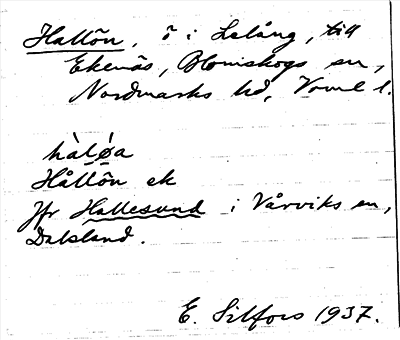 Hallön, ö i Lelång, till
Ekenäs, Blomskogs sn,
Nordmarks hd, Vrml l.
hàløa
Hållön ek
Jfr Hallesund i Vårviks sn,
Dalsland.
E. Silfors 1937.